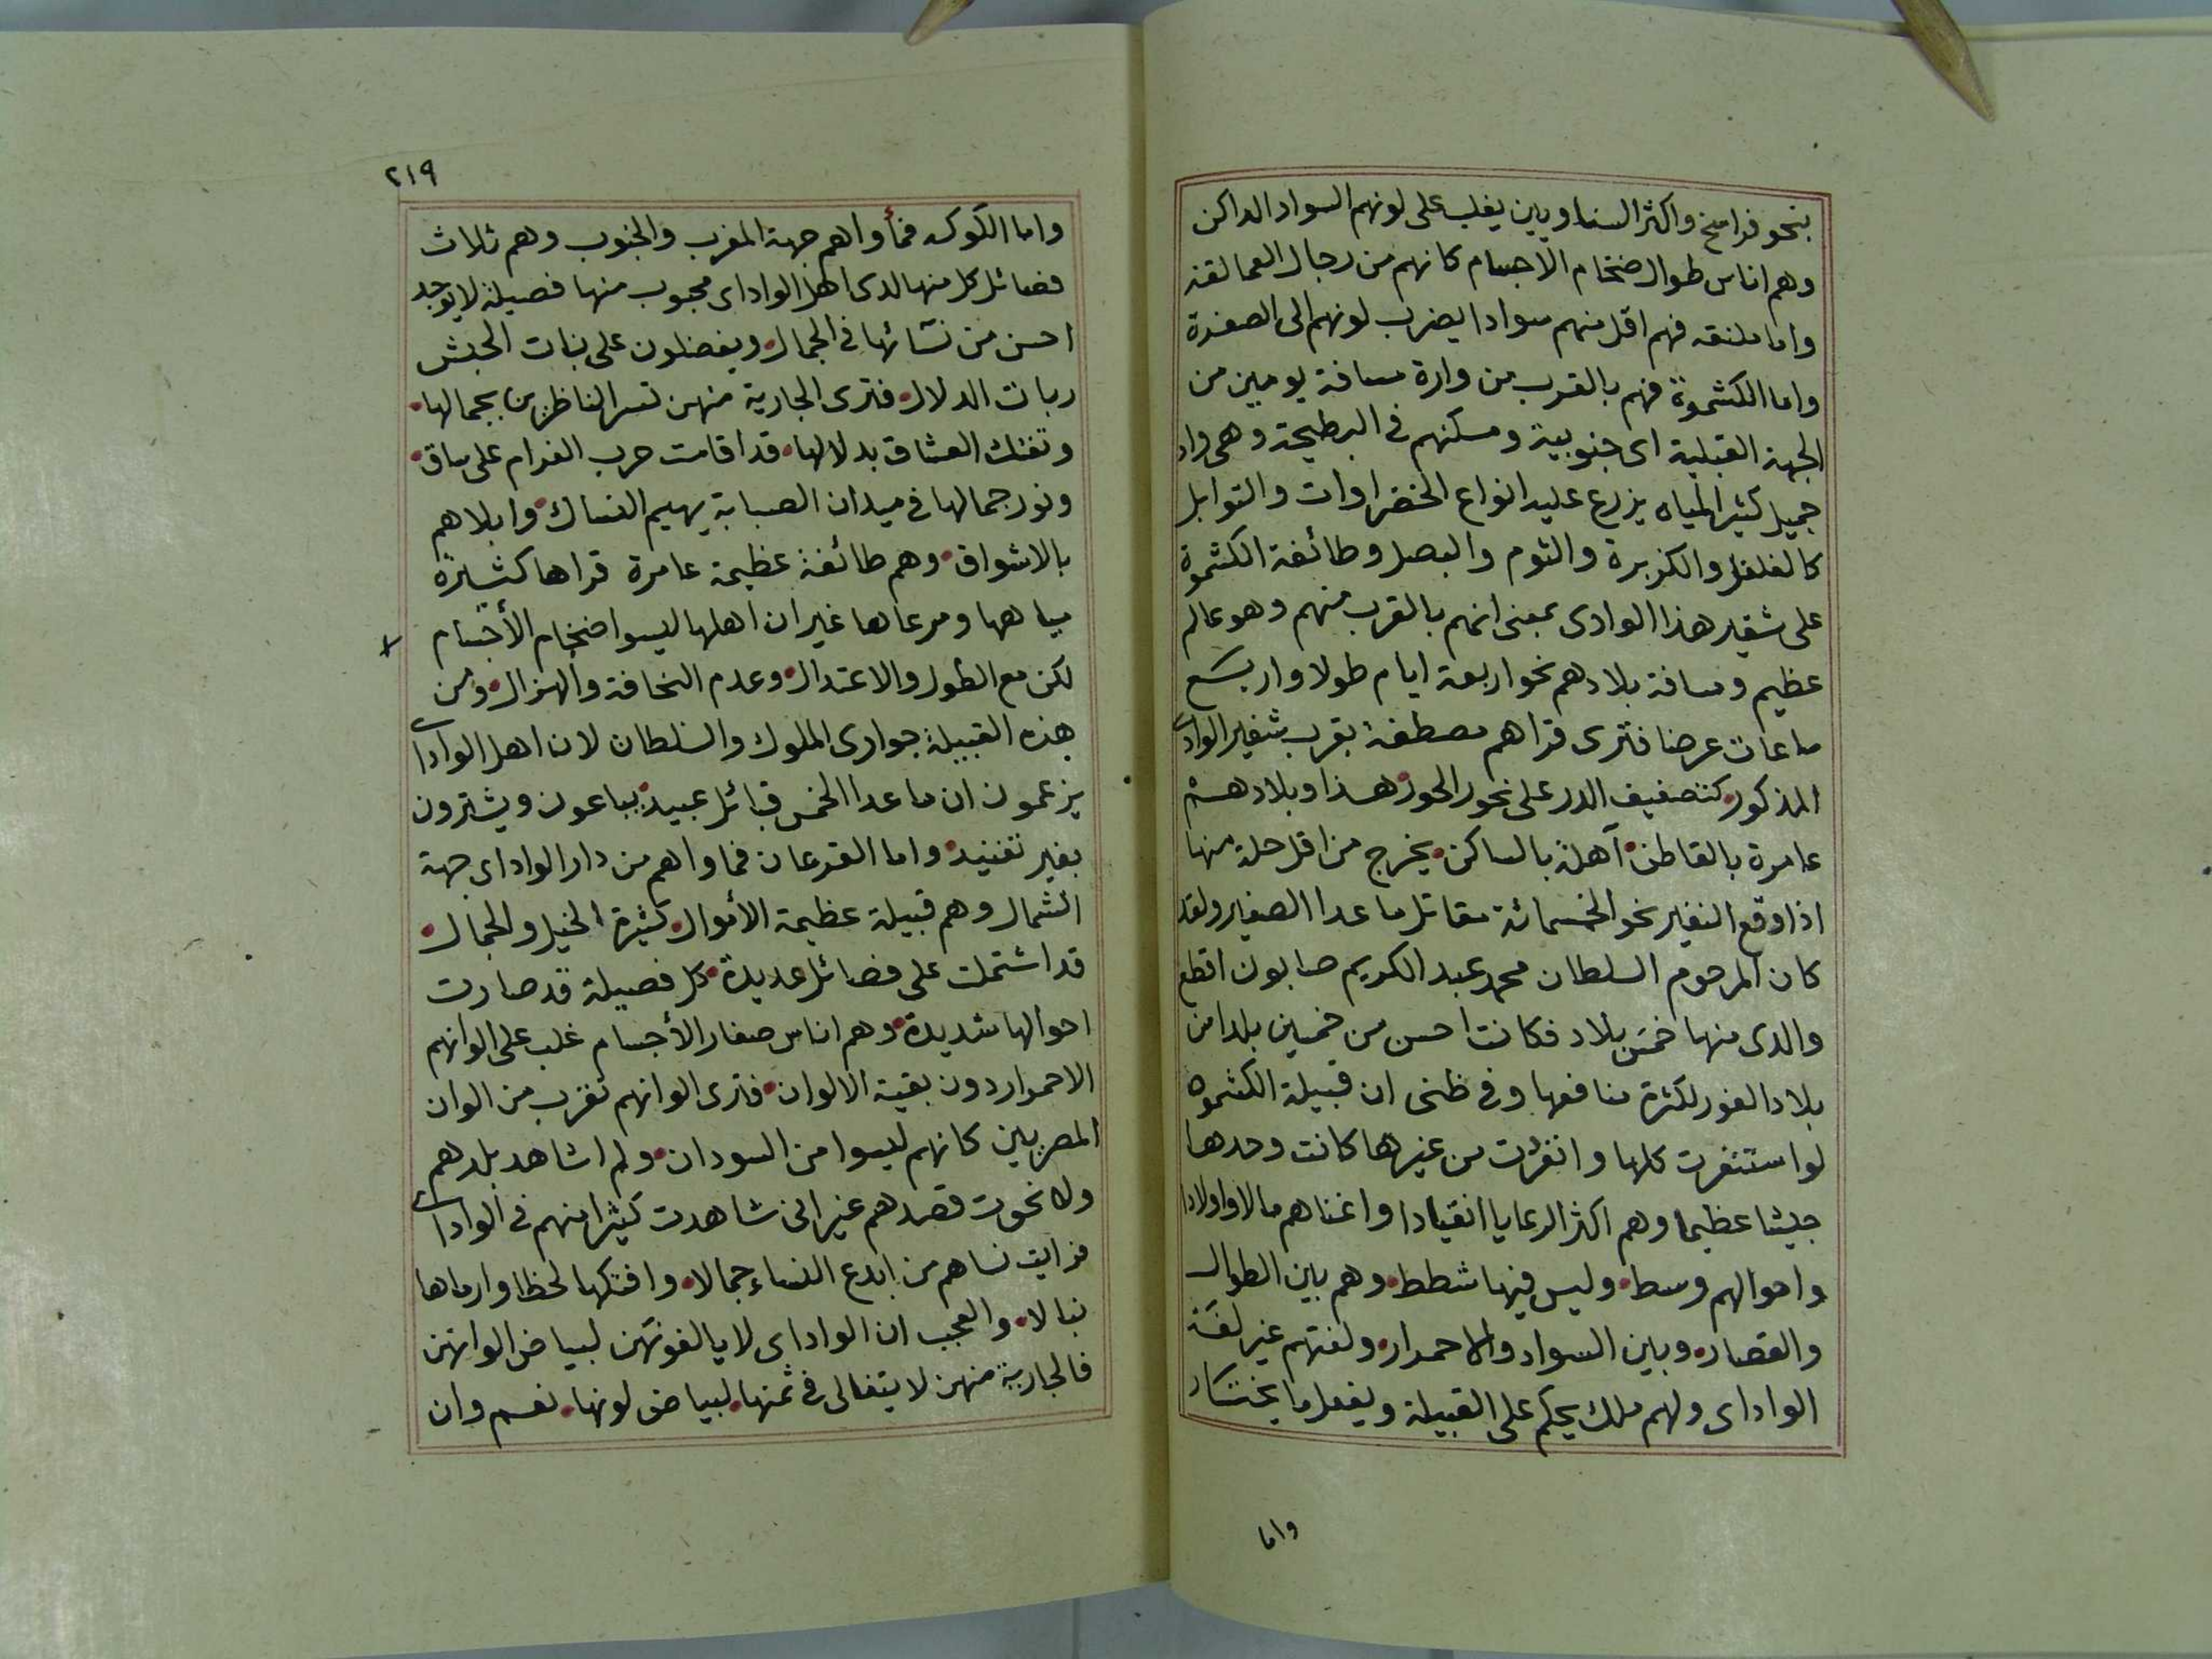 بنحو فراسخ واكثر السناويين يغلب على لونهم السواد الداكن
وهم اناس طوال ضخام الاجسام كانهم من رجال العمالقة
واما ملنقه فهم اقل منهم سوادا يضرب لونهم الى الصفرة
واما الكشمرة فهم بالقرب من وارة مسافة يومين من
الجهة القبلية اى جنوبية ومسكنهم فى البطيحة وهى واد
جميل كثير المياه يزرع عليه انواع الخضراوات والتوابل
كالفلفل والكزبرة والثوم والبصل وطائفة الكشمرة
على شفير هذا الوادى بمعنى انهم بالقرب منهم وهو عالم
عظيم ومسافة بلادهم نحو اربعة ايام طولا واربع
ساعات عرضا فترى قراهم مصطفة بقرب شفير الوادى
المذكور كتصفيف الدر على نحور الحور هذا وبلادهم
عامرة بالقاطن آهلة بالساكن يخرج من اقل حلة منها
اذا وقع النفير نحو الخمسمائة مقاتل ما عدا الصغير ولقد
كان المرحوم السلطان محمد عبد الكريم صابون اقطع
والدى منها خمس بلاد فكانت احسن من خمسين بلدا من
بلاد الفور لكثرة منافعها وفى ظنى ان قبيلة الكشمره
لو استنفرت كلها وانفردت من غيرها كانت وحدها
جيشا عظيما وهم اكثر الرعايا انقيادا واغناهم مالا واولادا
واحوالهم وسط وليس فيها شطط وهم بين الطوال
والقصار وبين السواد والاحمرار ولغتهم غير لغة
الواداى ولهم ملك يحكم على القبيلة ويفعل ما يختار
واما
٢١٩
واما الكوكه فمأواهم جهة المغرب والجنوب وهم ثلاث
فصائل كل منها لدى اهل الواداى محبوب منها فصيلة لا يوجد
احسن من نسائها فى الجمال ويفضلون على بنات الحبش
ربات الدلال فترى الجارية منهن تسر الناظرين بجمالها
وتفتك العشاق بدلالها قد اقامت حرب الغرام على ساق
ونور جمالها فى ميدان الصبابة يهيم النساك وابلاهم
بالاشواق وهم طائفة عظيمة عامرة قراها كثيرة
مياهها ومرعاها غير ان اهلها ليسوا ضخام الأجسام
لكن مع الطول والاعتدال وعدم النحافة والهزال ومن
هذه القبيلة جوارى الملوك والسلطان لان اهل الواداى
يزعمون ان ما عدا الخمس قبائل عبيد يباعون ويشترون
بغير تفنيد واما القرعان فمأواهم من دار الواداى جهة
الشمال وهم قبيلة عظيمة الأموال كثيرة الخيل والجمال
قد اشتملت على فصائل عديدة كل فصيلة قد صارت
احوالها شديدة وهم اناس صغار الأجسام غلب على الوانهم
الاحمرار دون بقية الالوان فترى الوانهم تقرب من الوان
المصريين كانهم ليسوا من السودان ولم اشاهد بلدهم
ولا نحوت قصدهم غير انى شاهدت كثيرا منهم فى الواداى
فرايت نساهم من ابدع النساء جمالا وافتكها لحظا وارماها
نبالا والعجب ان الواداى لا يالفونهن لبياض الوانهن
فالجارية منهن لا يتغالى فى ثمنها لبياض لونها نعم وان